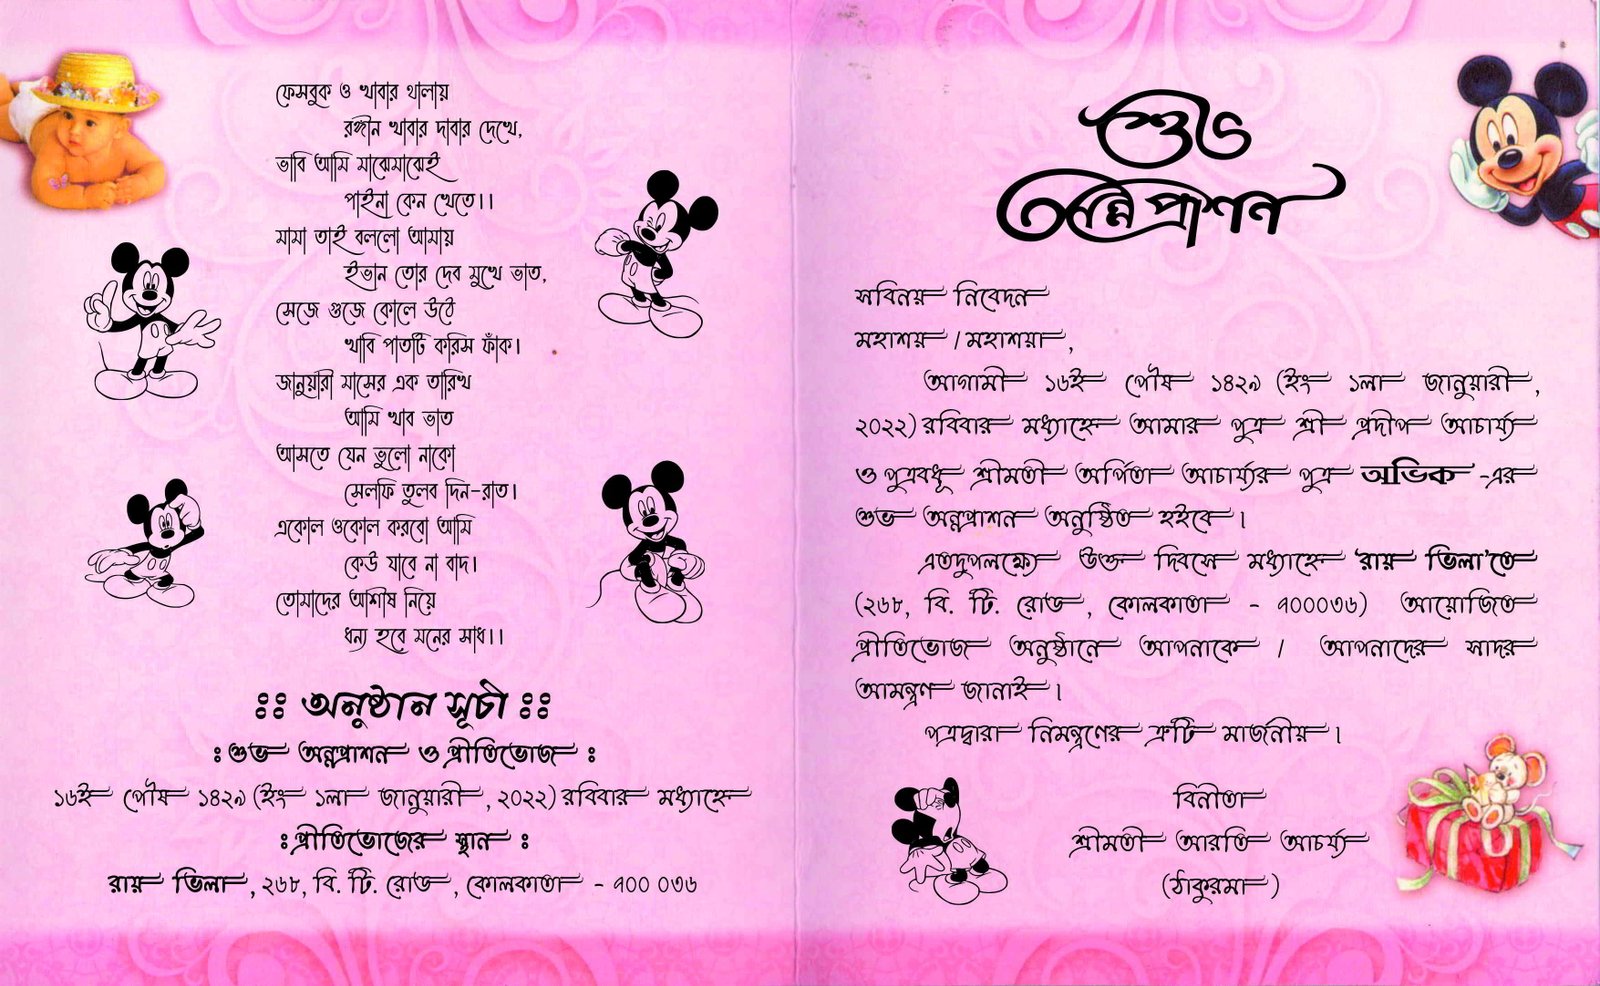 ফেসবুক ও খাবার থালায়
রঙ্গীন খাবার দাবার দেখে,
ভাবি আমি মাঝেমাঝেই
পাইনা কেন খেতে।।
মামা তাই বললো আমায়
ইভান তোর দেব মুখে ভাত,
সেজে গুজে কোলে উঠে
খাবি পাতটি করিস ফাঁক।
জানুয়ারী মাসের এক তারিখ
আমি খাব ভাত
আসতে যেন ভুলো নাকো
সেলফি তুলব দিন-রাত।
একোল ওকোল করবো আমি
কেউ যাবে না বাদ।
তোমাদের আশীষ নিয়ে
ধন্য হবে মনের সাধ।।
অনুষ্ঠান সূচী
: শুভ অন্নপ্রাশন ও প্রীতিভোজ :
১৬ই পৌষ ১৪২৯ (ইং ১লা জানুয়ারী, ২০২২) রবিবার মধ্যাহ্নে
: প্রীতিভোজের স্থান :
রায় ভিলা, ২৬৮, বি. টি. রোড, কোলকাতা - ৭০০ ০৩৬
শুভ
অন্নপ্রাশন
সবিনয় নিবেদন
মহাশয় / মহাশয়া,
আগামী ১৬ই পৌষ ১৪২৯ (ইং ১লা জানুয়ারী,
২০২২) রবিবার মধ্যাহ্নে আমার পুত্র শ্রী প্রদীপ আচার্য্য
ও পুত্রবধূ শ্রীমতী অর্পিতা আচার্য্যর পুত্র অভিক -এর
শুভ অন্নপ্রাশন অনুষ্ঠিত হইবে।
এতদুপলক্ষ্যে উক্ত দিবসে মধ্যাহ্নে 'রায় ভিলা'তে
(২৬৮, বি. টি. রোড, কোলকাতা - ৭০০০৩৬) আয়োজিত
প্রীতিভোজ অনুষ্ঠানে আপনাকে / আপনাদের সাদর
আমন্ত্রণ জানাই।
পত্রদ্বারা নিমন্ত্রণের ত্রুটি মার্জনীয়।
বিনীতা
শ্রীমতী আরতি আচর্য্য
(ঠাকুরমা)